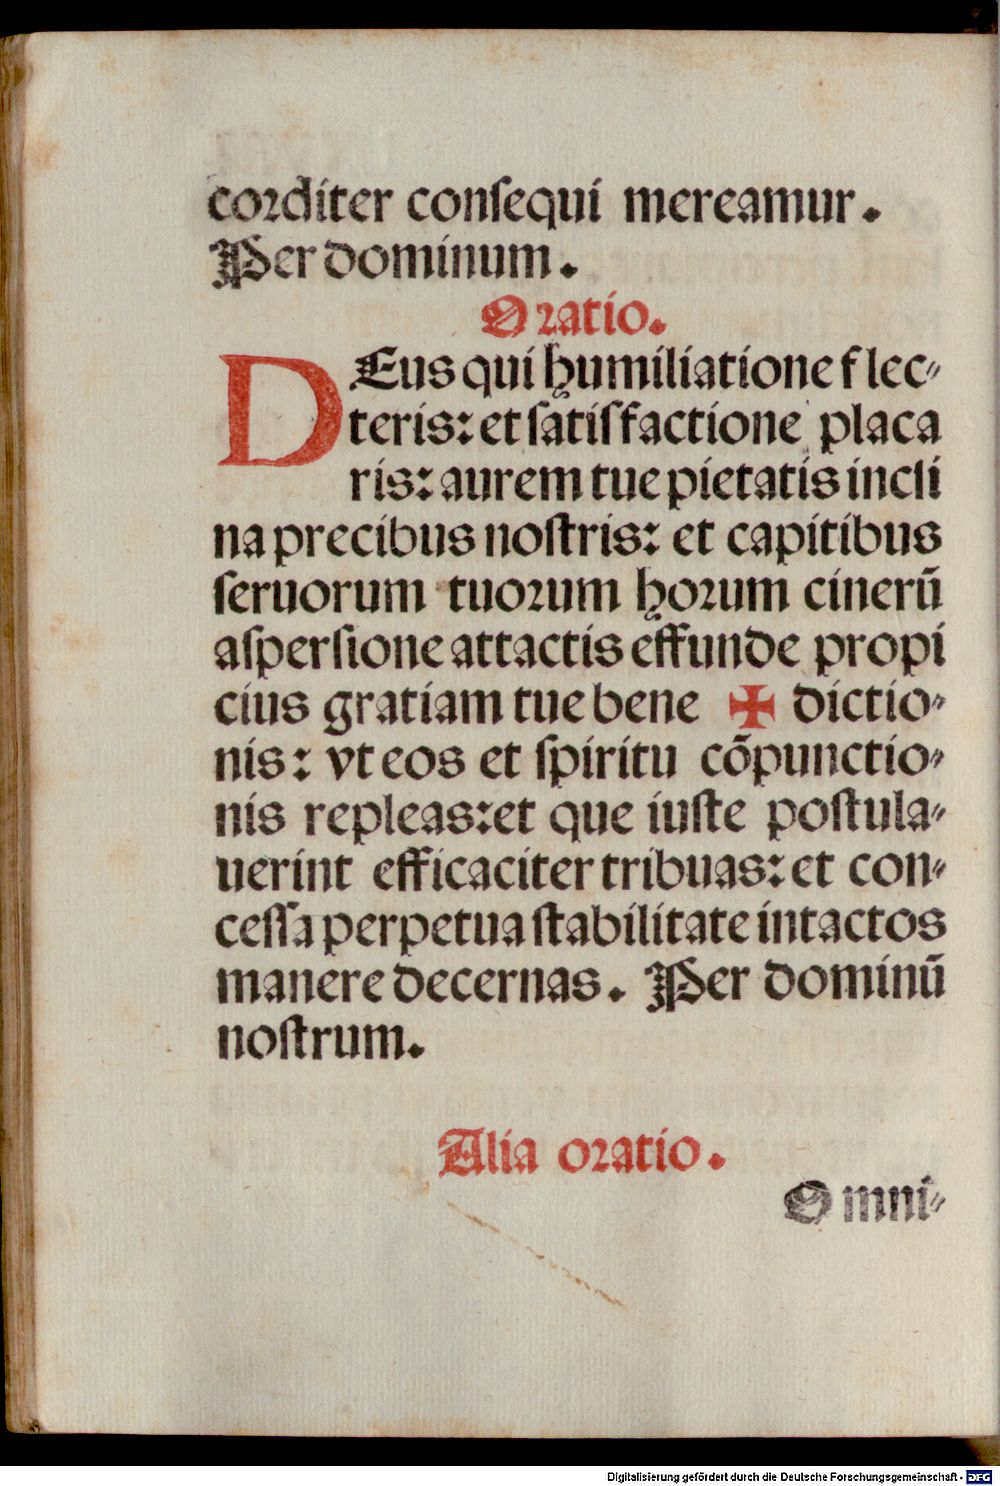 corditer conſequi mereamur.
Per dominum.
Oratio.
DEus qui humiliatione flec⸗
teris: et ſatiſfactione placa
ris: aurem tue pietatis incli
na precibus noſtris: et capitibus
ſeruorum tuorum horum cinerū
aſperſione attactis effunde propi
cius gratiam tue bene ✠ dictio⸗
nis: vt eos et ſpiritu cōpunctio⸗
nis repleas: et que iuſte poſtula⸗
uerint efficaciter tribuas: et con⸗
ceſſa perpetua ſtabilitate intactos
manere decernas. Per dominū
noſtrum.
Alia oratio.
Omni⸗
Digitalisierung gefördert durch die Deutsche Forschungsgemeinschaft - DFG